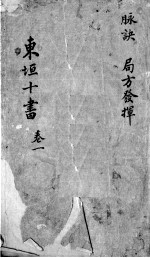 脉訣 局方發揮
東垣十書 卷一